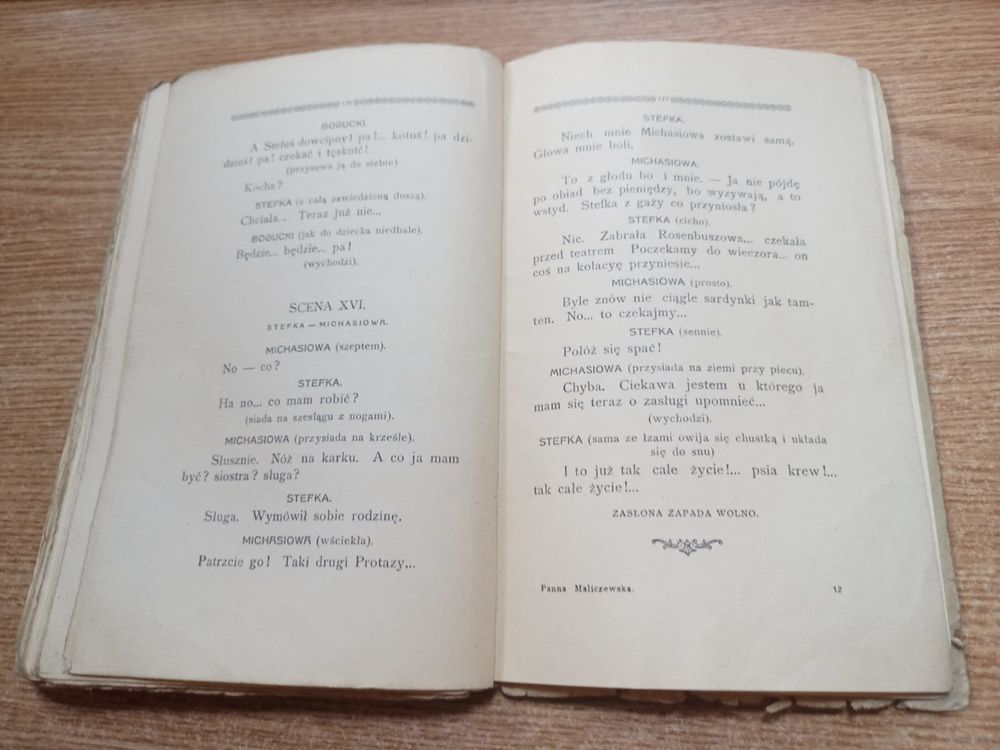 176
BOGUCKI.
A Stefuś dowcipny! pa!... kotuś! pa dzi-
dziuś! pa! czekać i tęsknić!
(przysuwa ją do siebie)
Kocha?
STEFKA (z całą zawiedzioną duszą).
Chciała... Teraz już nie...
BOGUCKI (jak do dziecka niedbale).
Będzie... będzie... pa!
(wychodzi).
SCENA XVI.
STEFKA — MICHASIOWA.
MICHASIOWA (szeptem).
No — co?
STEFKA.
Ha no... co mam robić?
(siada na szeslągu z nogami).
MICHASIOWA (przysiada na krześle).
Słusznie. Nóż na karku. A co ja mam
być? siostra? sługa?
STEFKA.
Sługa. Wymówił sobie rodzinę.
MICHASIOWA (wściekła).
Patrzcie go! Taki drugi Protazy...
177
STEFKA.
Niech mnie Michasiowa zostawi samą.
Głowa mnie boli.
MICHASIOWA.
To z głodu bo i mnie. — Ja nie pójdę
po obiad bez pieniędzy, bo wyzywają, a to
wstyd. Stefka z gaży co przyniosła?
STEFKA (cicho).
Nic. Zabrała Rosenbuszowa... czekała
przed teatrem. Poczekamy do wieczora... on
coś na kolacyę przyniesie...
MICHASIOWA (prosto).
Byle znów nie ciągle sardynki jak tam-
ten. No... to czekajmy...
STEFKA (sennie).
Połóż się spać!
MICHASIOWA (przysiada na ziemi przy piecu).
Chyba. Ciekawa jestem u którego ja
mam się teraz o zasługi upomnieć...
(wychodzi).
STEFKA (sama ze łzami owija się chustką i układa
się do snu)
I to już tak całe życie!... psia krew!...
tak całe życie!...
ZASŁONA ZAPADA WOLNO.
Panna Maliczewska. 12